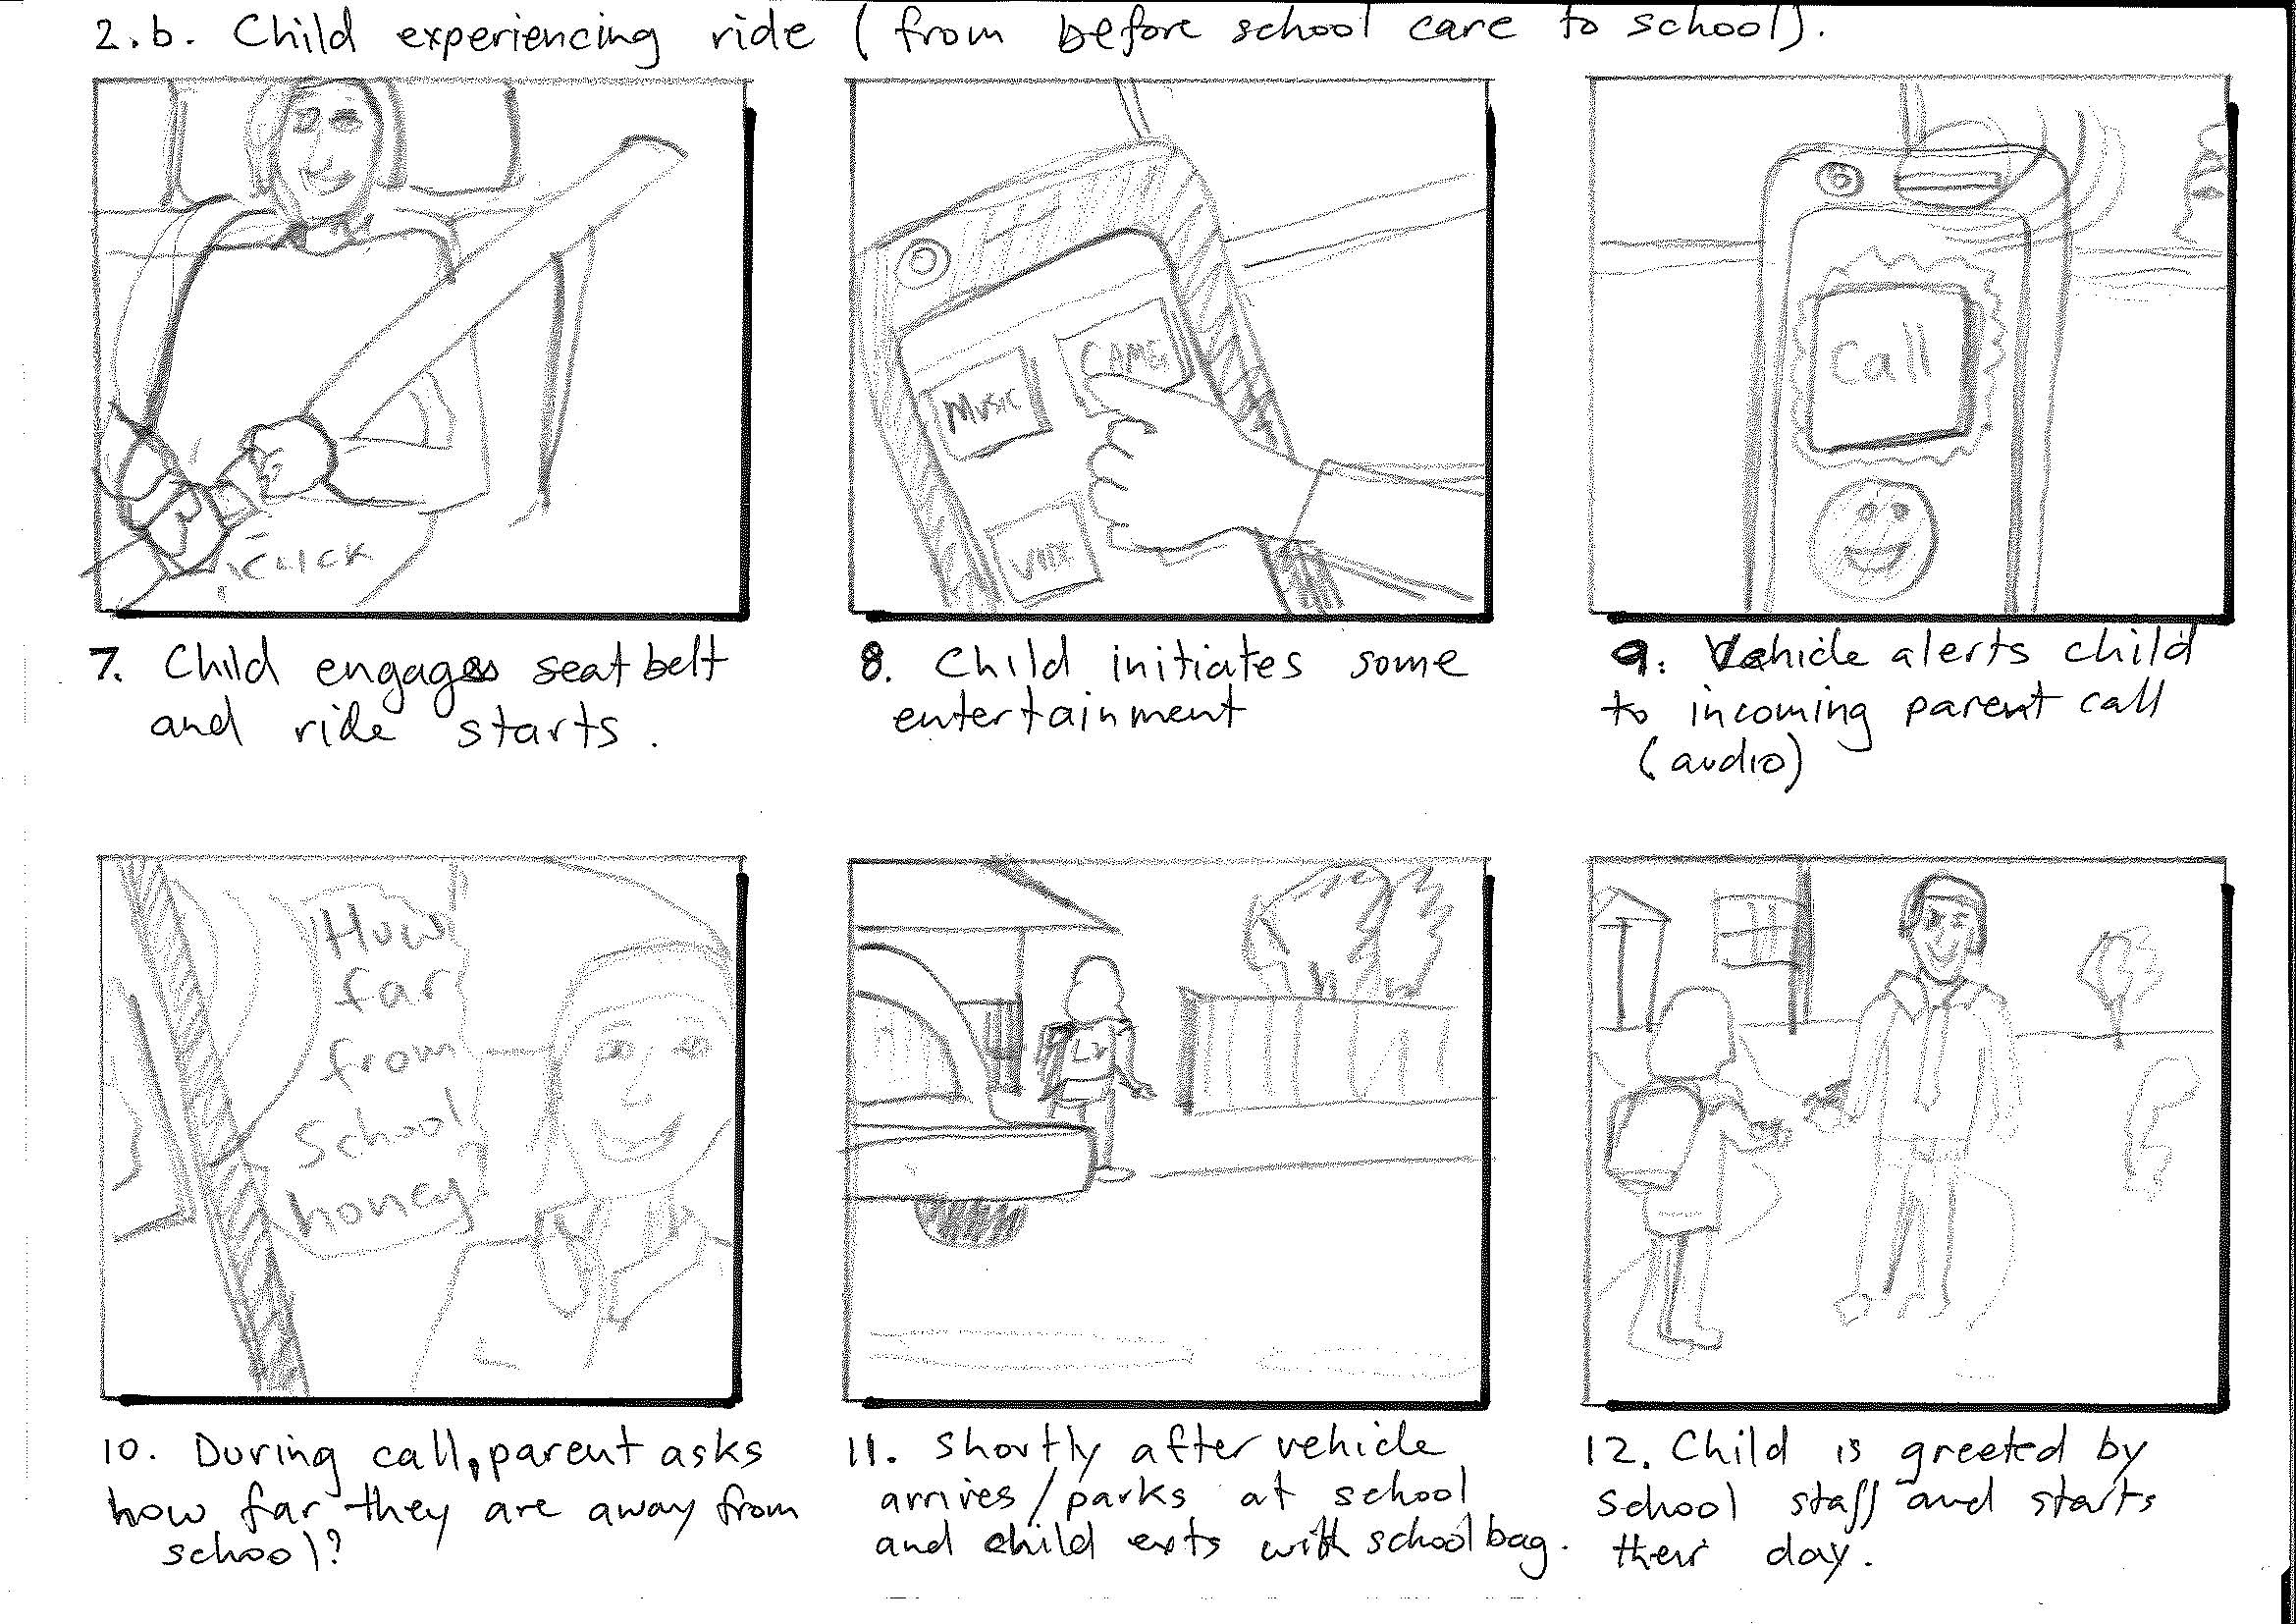 2.b. Child experiencing ride (from before school care to school).
CLICK
MUSIC
GAME
VIDE
Call
7. Child engages seat belt
and ride starts.
8. Child initiates some
entertainment
9. Vehicle alerts child
to incoming parent call
(audio)
How
far
from
School
honey?
10. During call, parent asks
how far they are away from
school?
11. Shortly after vehicle
arrives/parks at school
and child exits with school bag.
12. Child is greeted by
school staff and starts
their day.